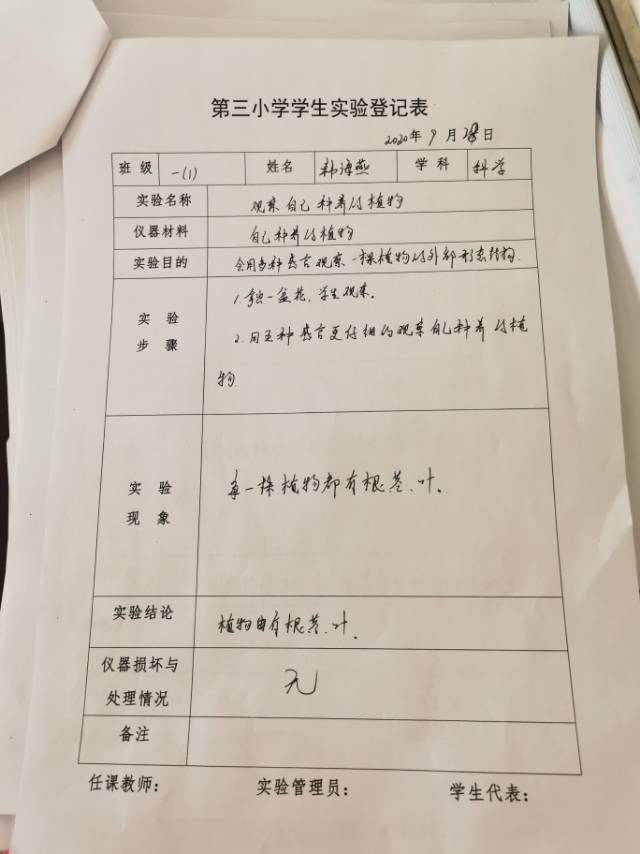 第三小学学生实验登记表
2020年 9 月 28日
班 级 一(1) 姓名 韩海燕 学 科 科学
实验名称 观察自己种养的植物
仪器材料 自己种养的植物
实验目的 会用多种感官观察一棵植物的外部形态结构.
1. 拿一盆花, 学生观察。
实 验
步 骤
2. 用五种感官更仔细的观察自己种养的植
物.
实 验
现 象
每一棵植物都有根茎、叶。
实验结论 植物由有根茎、叶.
仪器损坏与
处理情况
无
备注
任课教师: 实验管理员: 学生代表: